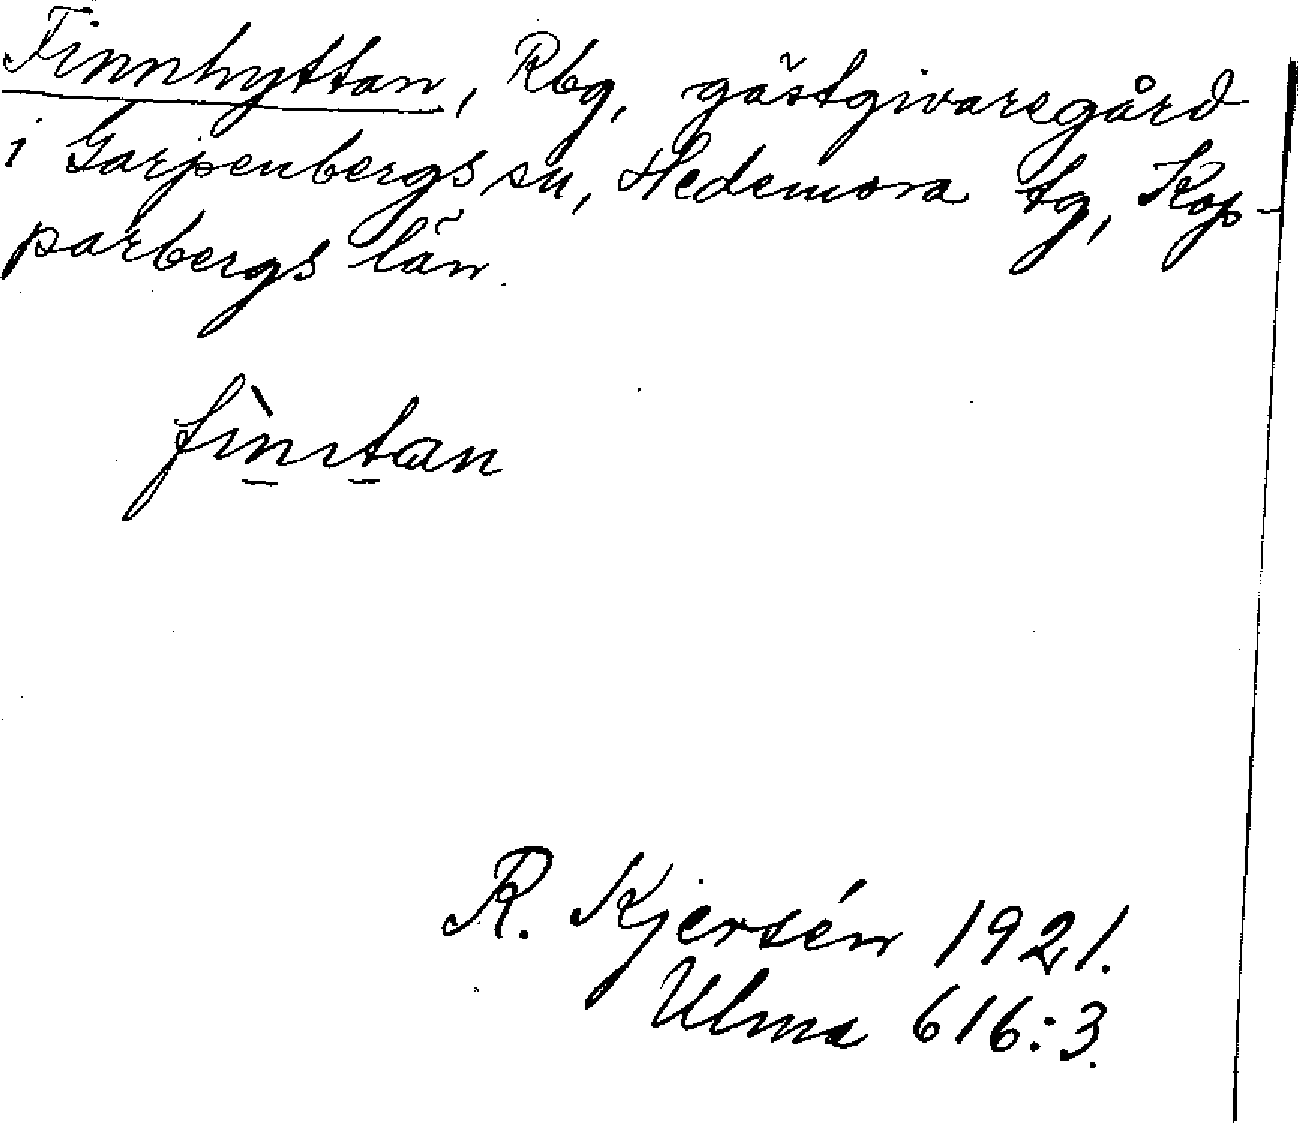 Finnhyttan, Rbg, gästgivaregård
i Garpenbergs sn, Hedemora tg, Kop-
parbergs län.
fìnıtan
R. Kjersén 1921.
Ulma 616:3.